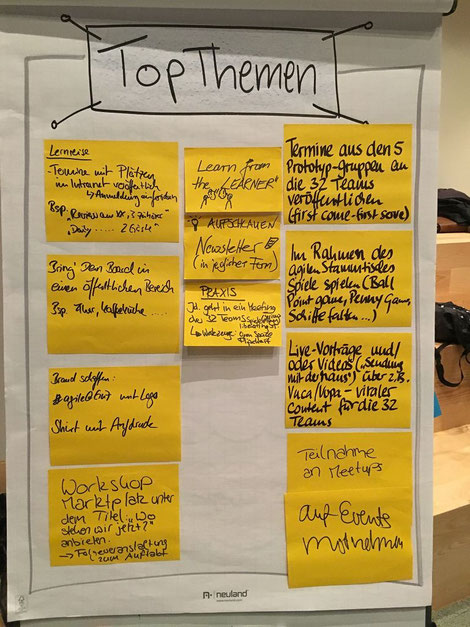 Top Themen
Lernreise
-Termine mit Plätzen
im Intranet veröffentlich
↳ Anmeldung
Bsp. "Review am XX, 3 Plätze"
"Daily ..... 2
Bring' Dein Board in
einen öffentlichen Bereich
Bsp. Flur, Kaffeeküche .....
Brand schaffen:
mit Logo
Shirt mit Aufdruck
Workshop
Marktplatz unter
dem Titel „Wo
stehen wir jetzt?"
anbieten.
→ Folgeveranstaltung
zum Auftakt
Learn from
the "LEARNER"
AUFSCHLAUEN
Newsletter
(in jeglicher Form)
PRAXIS
Jd. geht in ein Meeting
der 32 Teams
Termine aus den 5
Prototyp-gruppen an
die 32 Teams
veröffentlichen
(first come-first serve)
Im Rahmen des
agilen Stammtisches
Spiele spielen (Ball
Point game, Penny Game,
Schiffe falten...)
Live-Vorträge und/
oder Videos („Sendung
mit der Maus") über z.B.
Vuca/Vopa - viraler
content für die 32
Teams
Teilnahme
an Meetups
auf Events
mitnehmen
neuland